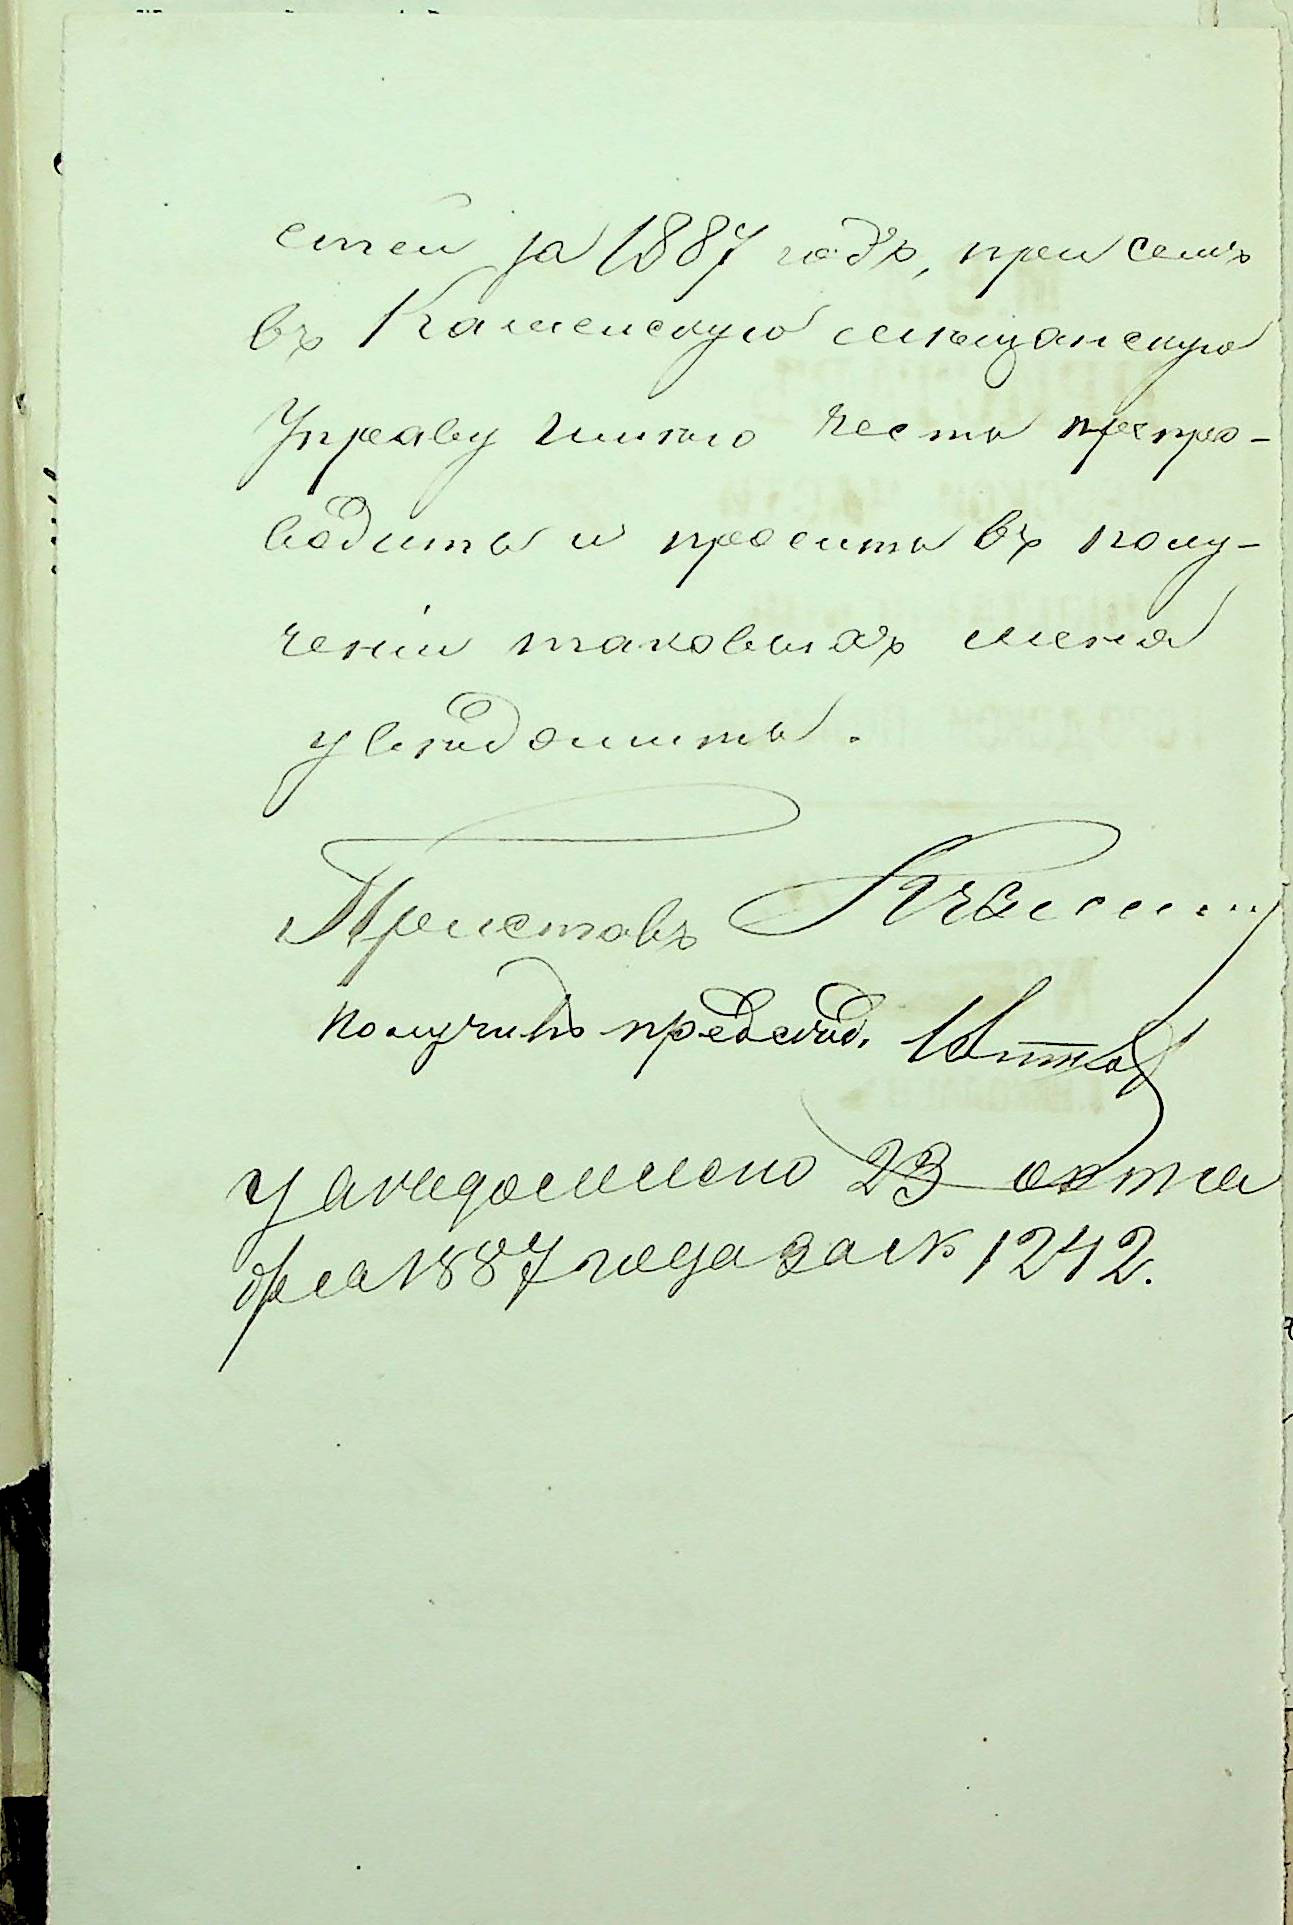 стей за 1887 годъ, при семъ
въ Каменскую мѣщанскую
Управу имѣю честь препро-
водить и просить въ полу-
ченіи таковыхъ меня
увѣдомить.
Приставъ
получилъ предсѣд.
уведомлено 23 октя
бря 1887 года за № 1242.